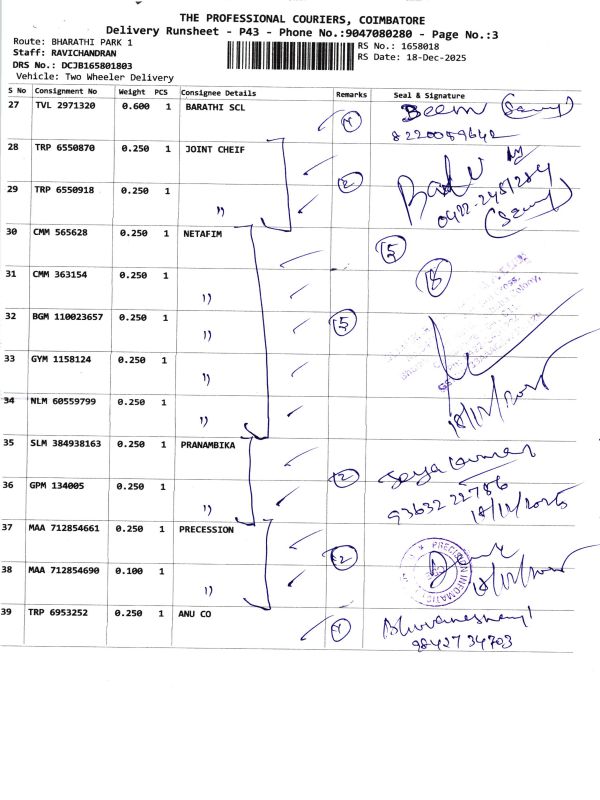 THE PROFESSIONAL COURIERS, COIMBATORE
Delivery Runsheet - P43 - Phone No.:9047080280 - Page No.:3
Route: BHARATHI PARK 1
Staff: RAVICHANDRAN
DRS No.: DCJB165801803
Vehicle: Two Wheeler Delivery
RS No.: 1658018
RS Date: 18-Dec-2025
S No Consignment No Weight PCS Consignee Details Remarks Seal & Signature
27 TVL 2971320 0.600 1 BARATHI SCL
8220089642
28 TRP 6550870 0.250 1 JOINT CHEIF 2
29 TRP 6550918 0.250 1 "
30 CMM 565628 0.250 1 NETAFIM 5
31 CMM 363154 0.250 1 " 18
32 BGM 110023657 0.250 1 " 5
33 GYM 1158124 0.250 1 "
34 NLM 60559799 0.250 1 "
18/12/2025
35 SLM 384938163 0.250 1 PRANAMBIKA 2
36 GPM 134005 0.250 1 "
93632 22786
18/12/2025
37 MAA 712854661 0.250 1 PRECESSION 2
38 MAA 712854690 0.100 1 "
18/12/2025
39 TRP 6953252 0.250 1 ANU CO
98427 34703